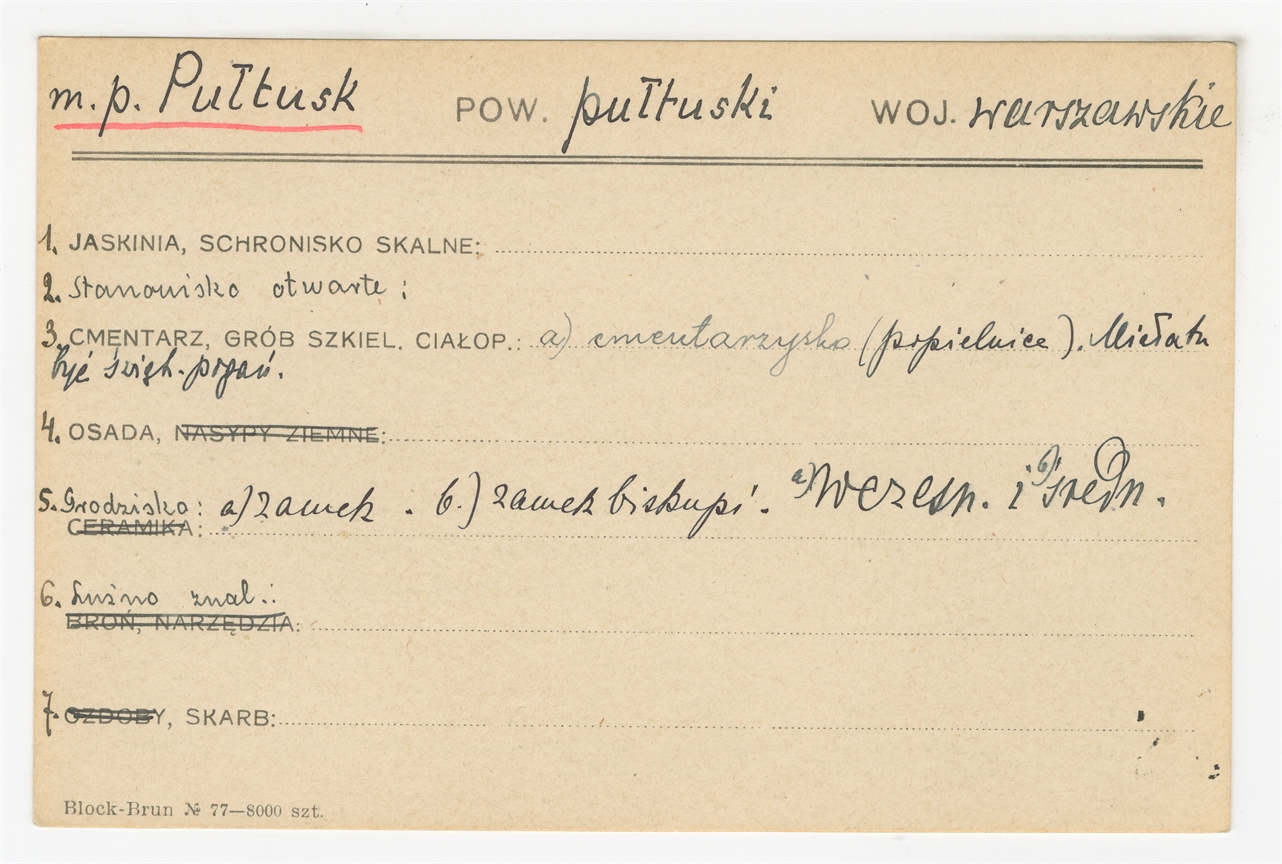 m.p. Pułtusk POW. pułtuski WOJ. warszawskie
1. JASKINIA, SCHRONISKO SKALNE:
2. Stanowisko otwarte:
3. CMENTARZ, GRÓB SZKIEL. CIAŁOP.: a) cmentarzysko (popielnice). Miała tu
być świąt. pogań.
4. OSADA, NASYPY ZIEMNE:
5. Grodzisko: a) zamek. b.) zamek biskupi. a) Wczesn. i b) średn.
CERAMIKA:
6. Luźno znal.:
BROŃ, NARZĘDZIA:
7. OZDOBY, SKARB:
Block-Brun № 77—8000 szt.